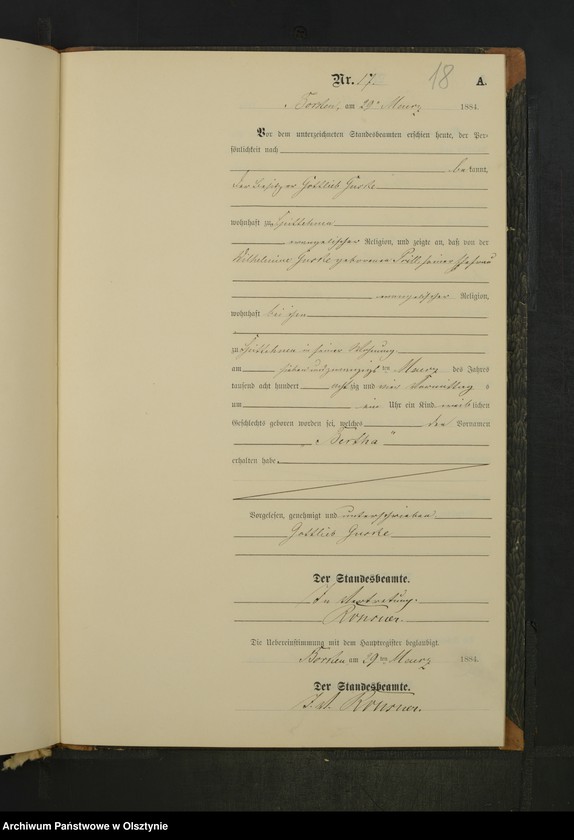 Nr. 17. 18 A.
am 29ⁿ Maerz 1884.
Vor dem unterzeichneten Standesbeamten erschien heute, der Per-
sönlichkeit nach
be kannt,
der Besitzer Gottlieb Guske
wohnhaft zu
evangelischer Religion, und zeigte an, daß von der
Wilhelmine Guske geborenen Prill, seiner Ehefrau
evangelischer Religion,
wohnhaft bei ihm
zu in seiner Wohnung
am sieben und zwanzigsten Maerz des Jahres
tausend acht hundert achtzig und vier Vormittags
um ein Uhr ein Kind weiblichen
Geschlechts geboren worden sei, welches den Vornamen
„Bertha“
erhalten habe.
Vorgelesen, genehmigt und unterschrieben
Gottlieb Guske
Der Standesbeamte.
In Vertretung.
Die Uebereinstimmung mit dem Hauptregister beglaubigt.
am 29ten Maerz 1884.
Der Standesbeamte.
Archiwum Państwowe w Olsztynie